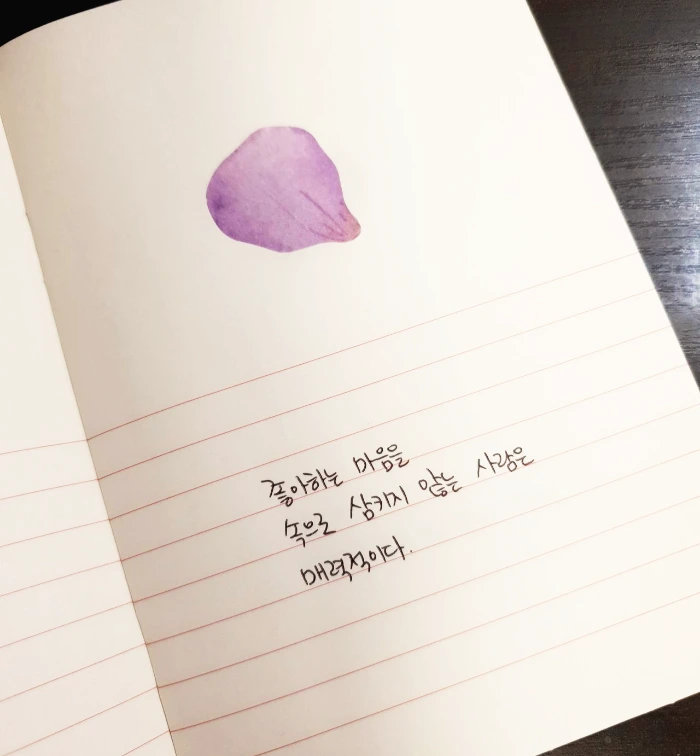 좋아하는 마음을
속으로 삼키지 않는 사람은
매력적이다.